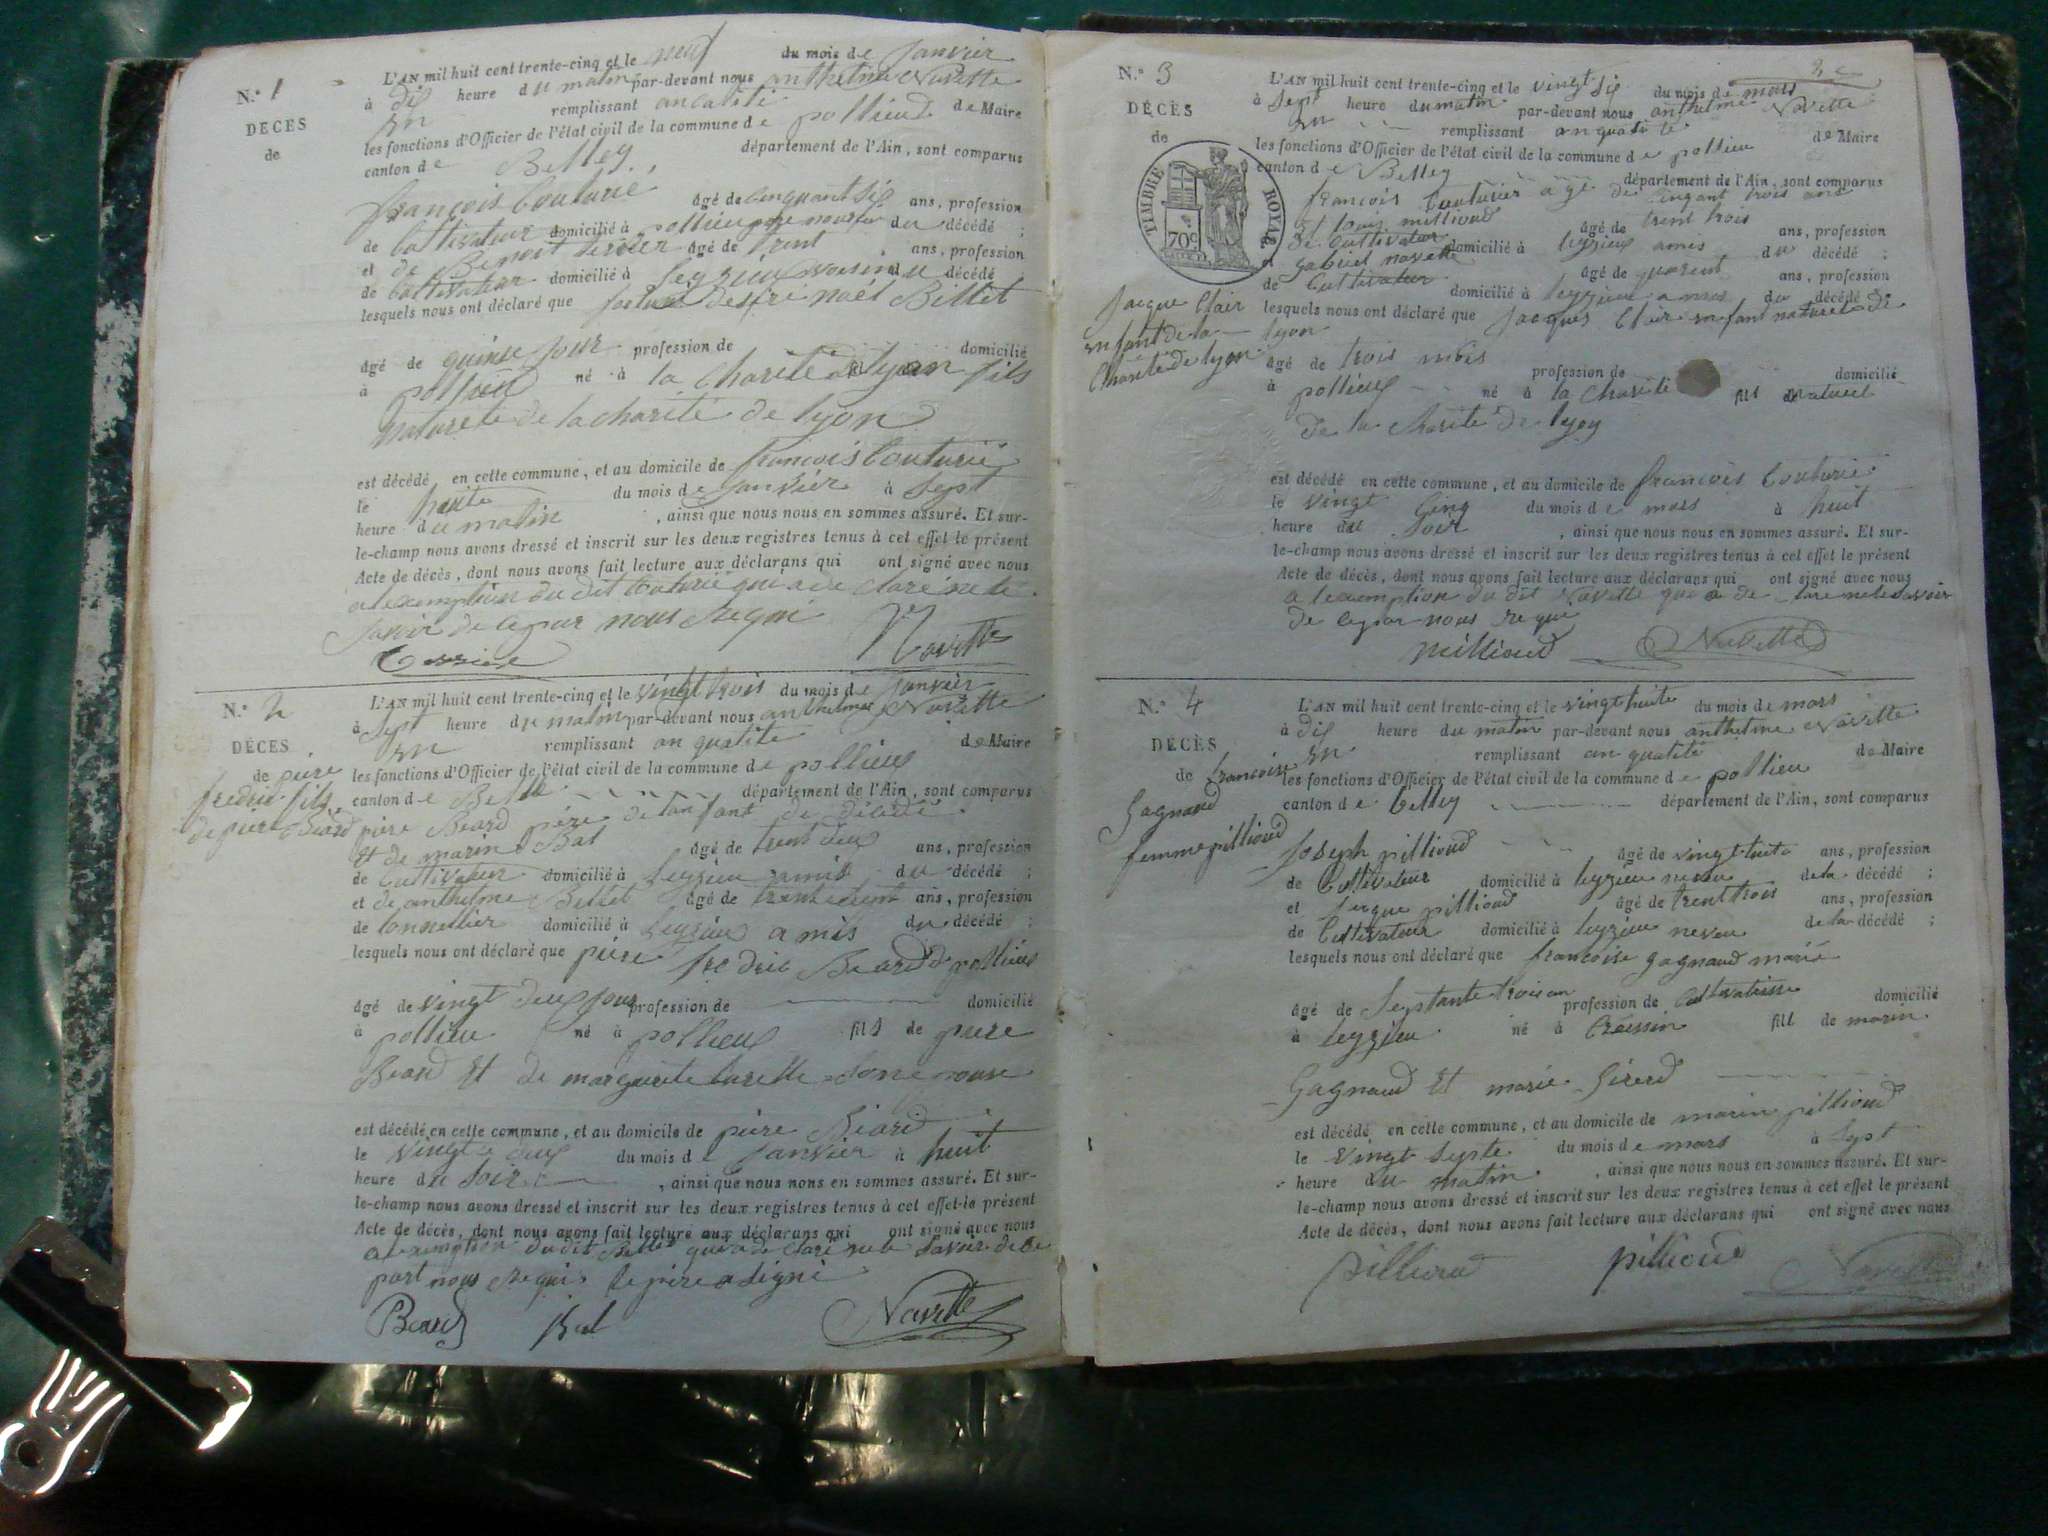 N.° 1
DÉCÈS
de
L'AN mil huit cent trente-cinq et le neuf du mois de Janvier
à dix heure du matin par-devant nous anthelme Navette
En remplissant en calité de Maire
les fonctions d'Officier de l'état civil de la commune de pollieu
canton de Belley département de l'Ain, sont comparus
françois Couturié âgé de cinquant six ans, profession
de Cultivateur domicilié à pollieu du décédé ;
et de Benoit âgé de trent ans, profession
de Cultivateur domicilié à Leyzieu voisin du décédé
lesquels nous ont déclaré que noël Billet
âgé de quinse jour profession de domicilié
à pollieu né à la Charité de lyon fils
naturele de la charité de lyon
est décédé en cette commune, et au domicile de françois Couturié
le huite du mois de Janvier à Sept
heure du matin , ainsi que nous nous en sommes assuré. Et sur-
le-champ nous avons dressé et inscrit sur les deux registres tenus à cet effet le présent
Acte de décès, dont nous avons fait lecture aux déclarans qui ont signé avec nous
a lexemption du dit Couturié qui a de claré ne le
Savoir de ce par nous Requi
Navette
N.° 2
DÉCES
de piere
fredric fils
de piere Béard
L'AN mil huit cent trente-cinq et le vingt trois du mois de Janvier
à Sept heure du matin par-devant nous anthelme Navette
En remplissant an qualité de Maire
les fonctions d'Officier de l'état civil de la commune de pollieu
canton de Belley département de l'Ain, sont comparus
piere Beard père de lanfant de décédé
Et de marin Bal âgé de trent deux ans, profession
de Cultivateur domicilié à Leyzieu amis du décédé ;
et de anthelme Billet âgé de ans, profession
de tonnellier domicilié à Leyzieu amis du décédé ;
lesquels nous ont déclaré que piere fredric Beard de pollieu
âgé de vingt deux jour profession de domicilié
à pollieu né à pollieu fils de piere
Beard Et de marguerite
est décédé en cette commune, et au domicile de piere Béard
le vingt deux du mois de Janvier à huit
heure du Soir , ainsi que nous nous en sommes assuré. Et sur-
le-champ nous avons dressé et inscrit sur les deux registres tenus à cet effet le présent
Acte de décès, dont nous avons fait lecture aux déclarans qui ont signé avec nous
a lexemption du dit Billet qui a de claré ne le Savoir de ce
part nous Requi. le père a Signé
Beard Bal Navette
N.° 3
DÉCÈS
de
TIMBRE ROYAL
70c
Jacque Clair
enfant de la
Charité de lyon
L'AN mil huit cent trente-cinq et le vingt six du mois de mars
à Sept heure du matin par-devant nous anthelme Navette
En remplissant an qualité de Maire
les fonctions d'Officier de l'état civil de la commune de pollieu
canton de Belley département de l'Ain, sont comparus
françois Couturier agé de cinqant trois ans
Et louis millioud âgé de trent trois ans, profession
de Cultivateur domicilié à leyzieu amis du décédé ;
et gabriel navette âgé de quarent ans, profession
de Cultivateur domicilié à leyzieu amis du décédé ;
lesquels nous ont déclaré que Jacques Clair enfant naturele de
lyon
âgé de trois mois profession de domicilié
à pollieu né à la Charité fils naturel
de la charité de lyon
est décédé en cette commune, et au domicile de françois Couturié
le vingt cinq du mois de mars à huit
heure du Soir , ainsi que nous nous en sommes assuré. Et sur-
le-champ nous avons dressé et inscrit sur les deux registres tenus à cet effet le présent
Acte de décès, dont nous avons fait lecture aux déclarans qui ont signé avec nous
a lexemption du dit Navette que a de clare ne le Savoir
de ce par nous reque
millioud Navette
N.° 4
DÉCÈS
de francoise
Gagnaud
femme pillioud
L'AN mil huit cent trente-cinq et le vingt huite du mois de mars
à dix heure du matin par-devant nous anthelme Navette
En remplissant an qualité de Maire
les fonctions d'Officier de l'état civil de la commune de pollieu
canton de belley département de l'Ain, sont comparus
Joseph pillioud âgé de vingt huite ans, profession
de Cultivateur domicilié à leyzieu neveu de la décédé ;
et Jacque pillioud âgé de trent trois ans, profession
de Cultivateur domicilié à leyzieu neveu de la décédé ;
lesquels nous ont déclaré que françoise gagnaud marié
âgé de Septante trois an profession de Cultivatrisse domicilié
à leyzieu né à Creissin fill de marin
Gagnaud Et marie Girerd
est décédé en cette commune, et au domicile de marin pillioud
le vingt Septe du mois de mars à Sept
heure du matin , ainsi que nous nous en sommes assuré. Et sur-
le-champ nous avons dressé et inscrit sur les deux registres tenus à cet effet le présent
Acte de décès, dont nous avons fait lecture aux déclarans qui ont signé avec nous
pillioud pillioud Navette